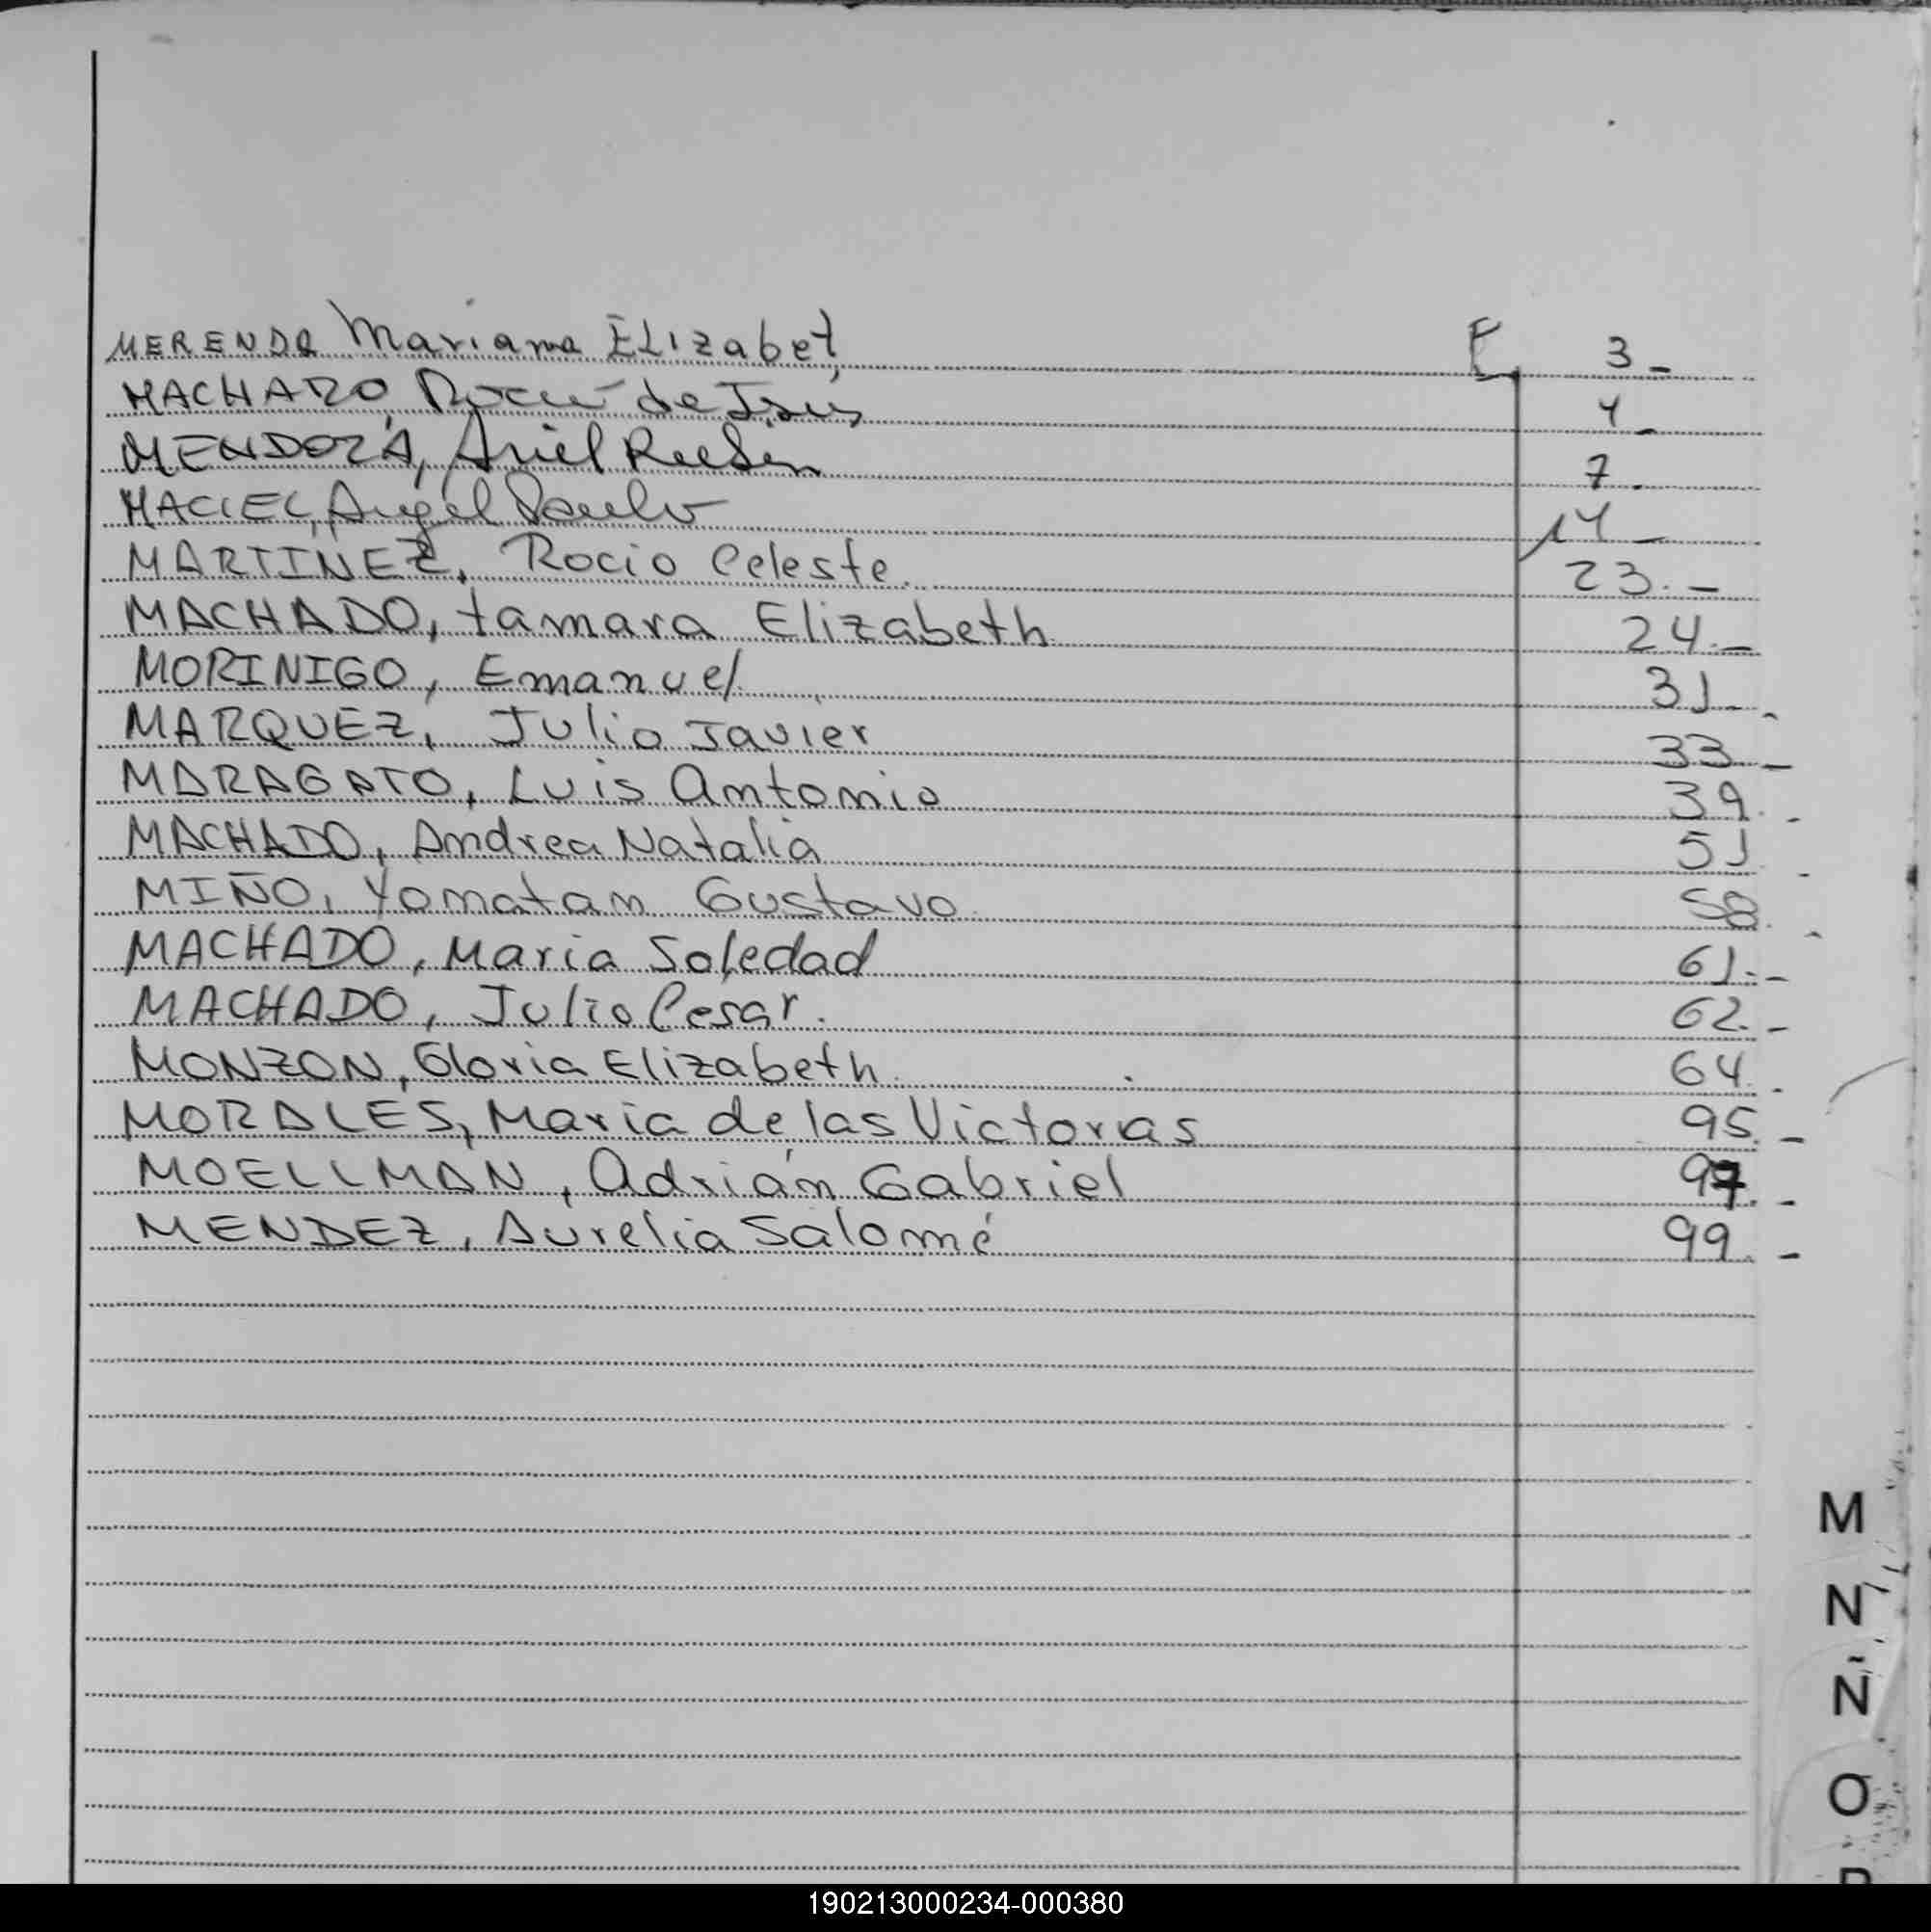 MERENDA Mariana ELIzabet F 3_
MACHADO Rocio de Jesús 4_
MENDOZA, Ariel Rubén 7.
MACIEL, Angel Paulo 14_
MARTINEZ, Rocio Celeste. 23._
MACHADO, tamara Elizabeth 24._
MORINIGO, Emanuel 31_
MARQUEZ, Julio Javier 33_
MARAGATO, Luis Antonio 39._
MACHADO, Andrea Natalia 51_
MIÑO, Yonatan Gustavo 58._
MACHADO, Maria Soledad 61._
MACHADO, Julio Cesar. 62._
MONZON, Gloria Elizabeth 64._
MORALES, Maria de las Victorias 95._
MOELLMAN, Adrián Gabriel 97._
MENDEZ, Aurelia Salomé 99._
M
N
Ñ
O
190213000234-000380